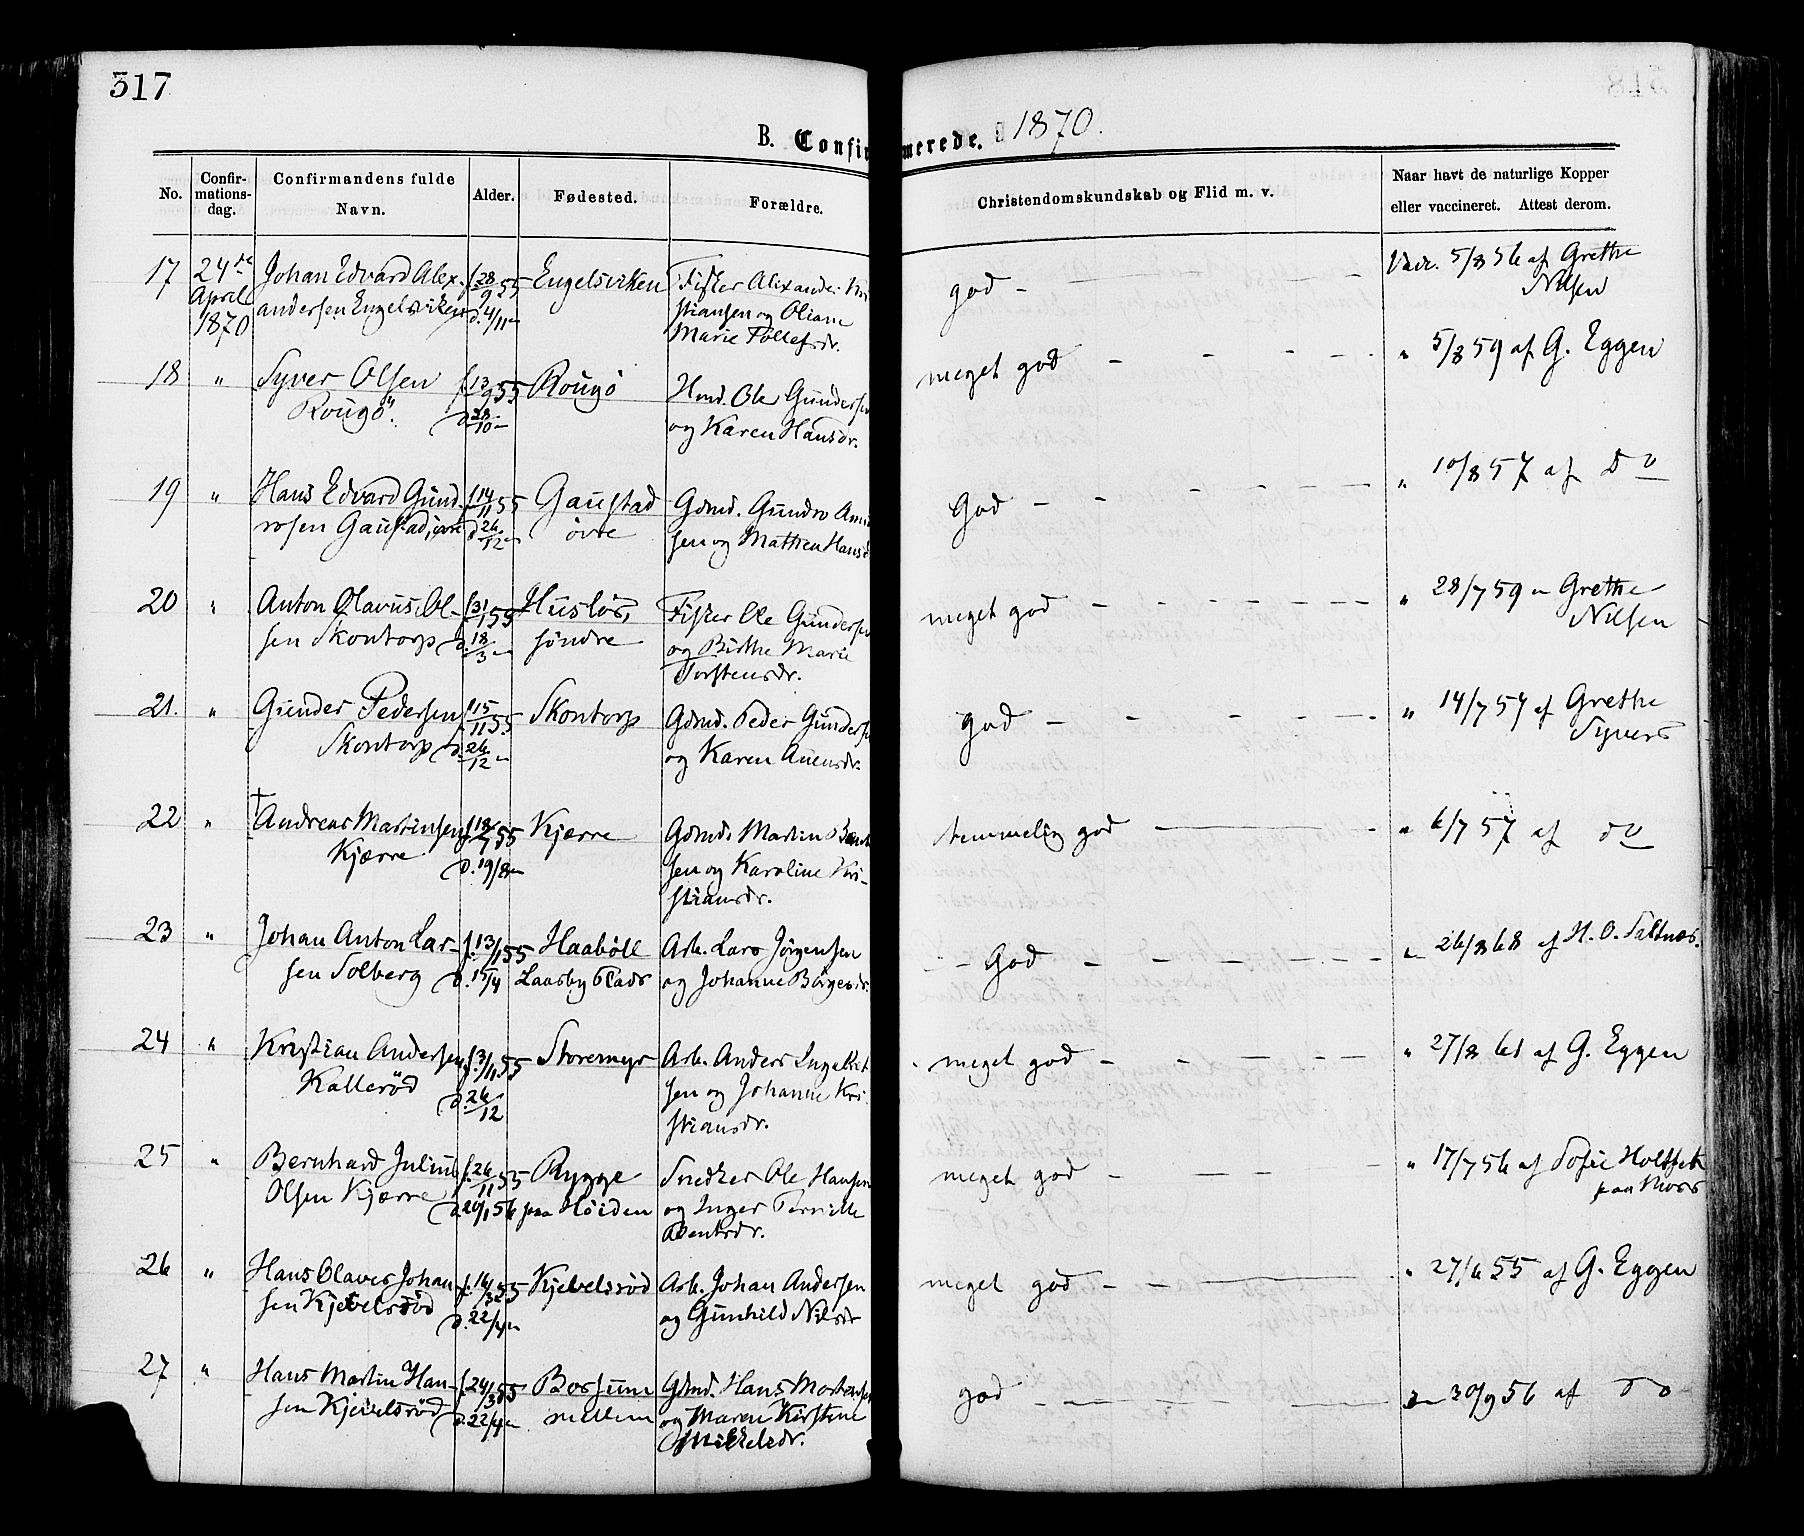 317
B. Confirmerede. 1870.
No.
Confirmationsdag.
Confirmandens fulde Navn.
Alder.
Fødested.
Forældre.
Christendomskundskab og Flid m. v.
Naar havt de naturlige Kopper
eller vaccineret. Attest derom.
17 24de Johan Edvard Alex- f. 28/9 55 Engelsviken Fisker Alexander Kri god Vacc. 5/8 56 af Grethe
April andersen Engelsviken d. 4/11 stiansen og Oliane Nilsen
1870 Marie Tollefsdr.
18 " Syver Olsen f. 13/9 55 Rougö Hmd. Ole Gundersen meget god " 5/8 59 af G. Eggen
Rougö d. 28/10 og Karen Hansdr.
19 " Hans Edvard Gund- f. 14/11 55 Gaustad Gdmd. Gundro God " 10/8 57 af Do
rosen Gaustad, øvre d. 26/12 övre sen og Mathea Hansd
20 " Anton Olavus Ol- f. 31/1 55 Huslös, Fisker Ole Gundersen meget god " 28/7 59 " Grethe
sen Skontorp d. 18/3 söndre og Birthe Marie Nilsen
Torstensdr.
21. " Gunder Pedersen f. 15/11 55 Skontorp Gdmd. Peder Gunders god " 14/7 57 af Grethe
Skontorp d. 26/12 og Karen Auensdr. Syvers
22 " † Andreas Martinsen f. 18/7 55 Kjærre Gdmd. Martin Bernt temmelig god " 6/7 57 af do
Kjærre d. 19/8 sen og Karoline Kri-
stiansdr.
23 " Johan Anton Lar- f. 13/1 55 Haaböll Arb. Lars Jørgensen God " 26/8 68 af H. O. Saltnæs.
sen Solberg d. 15/4 Laasby Plads og Johanne Börgesdr.
24 " Kristian Andersen f. 3/11 55 Storemyr Arb. Anders Ingebret meget god " 27/8 61 af G. Eggen
Kallerød d. 26/12 sen og Johanne Kri-
stiansdr.
25 " Bernhard Julius f. 26/11 55 Rygge Snedker Ole Hansen meget god " 17/7 56 af Sofie Holtsek
Olsen Kjærre d. 20/1 56 paa Höiden og Inger Pernille paa Moss
Berntsdr.
26 " Hans Olaves Johan f. 16/3 55 Kjelvelsröd Arb. Johan Andersen meget god " 27/6 55 af G. Eggen
sen Kjelvelsröd d. 22/4 og Gunhild Nilsdr
27 " Hans Martin Han- f. 24/3 55 Bossum Gdmd. Hans Mortensen god 30/9 56 af do
sen Kjelvelsröd d. 22/4 mellem og Maren Kirstine
Mikkelsdr.